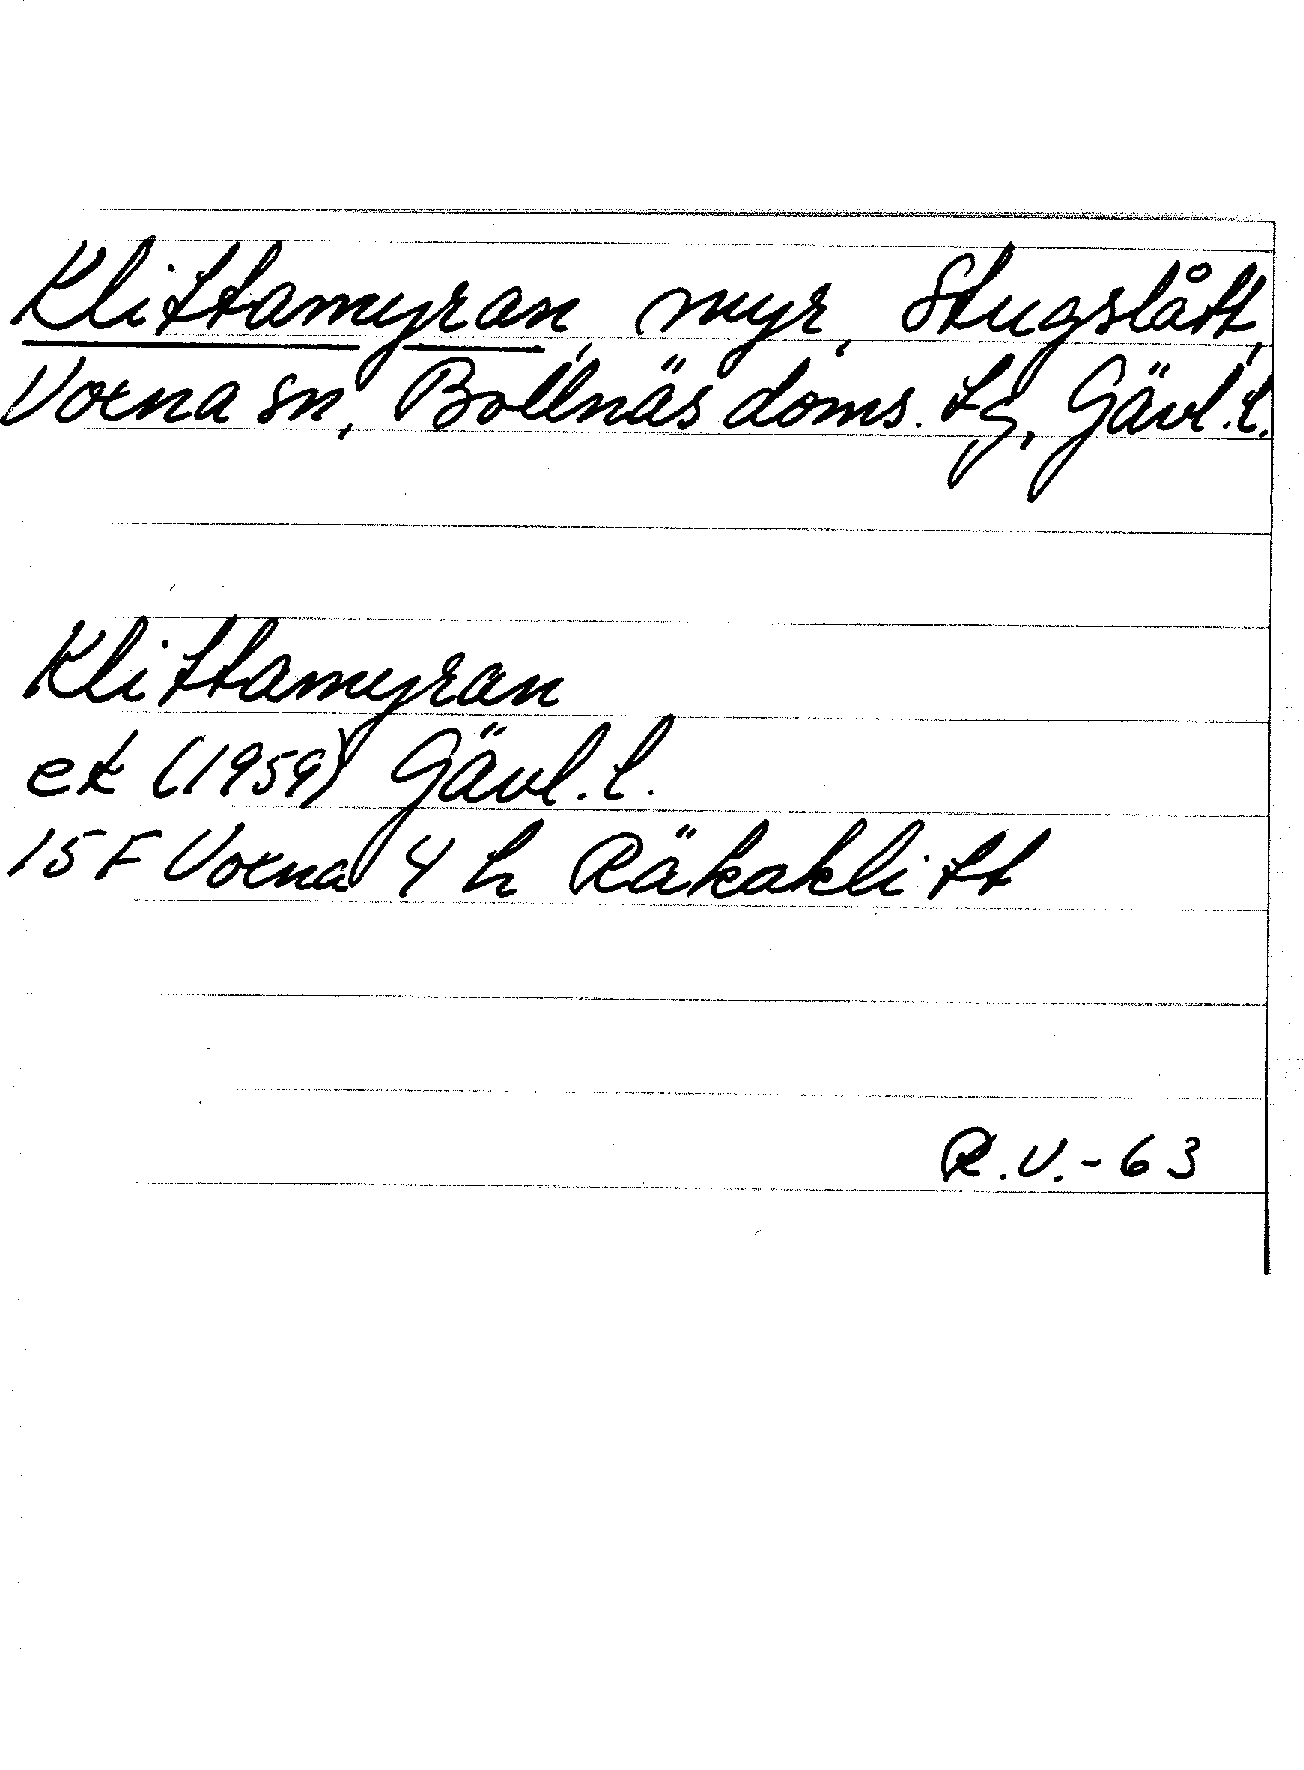 Klittamyran, myr, Stugslått,
Voxna sn, Bollnäs doms. tg, Gävl. l.
Klittamyran
ek (1959) Gävl. l.
15 F Voxna 4 h Räkaklitt
R.V.-63